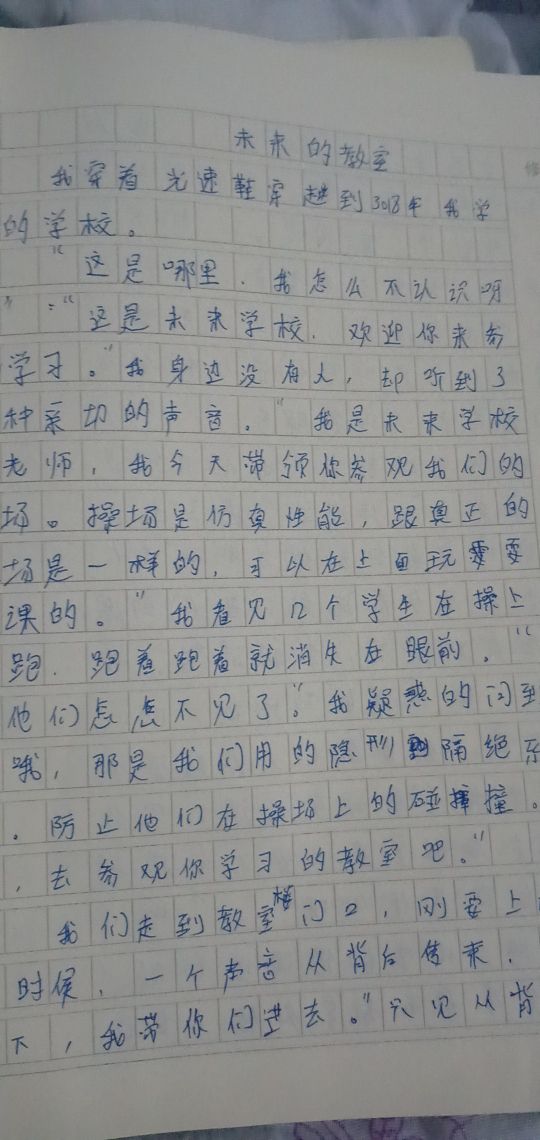 未来的教室
我穿着光速鞋穿越到3018年我学
的学校。
“这是哪里，我怎么不认识呀
”：“这是未来学校，欢迎你来参
学习。”我身边没有人，却听到了
种亲切的声音。“我是未来学校
老师，我今天带领你参观我们的
场。操场是仿真性能，跟真正的
场是一样的，可以在上面玩耍
课的。”我看见几个学生在操上
跑，跑着跑着就消失在眼前。“
他们怎怎不见了”。我疑惑的问到
哦，那是我们用的隐形隔绝系
。防止他们在操场上的碰撞。
，去参观你学习的教室吧。”
我们走到教室楼门口，刚要上
时候，一个声音从背后传来，
下，我带你们进去。”只见从背